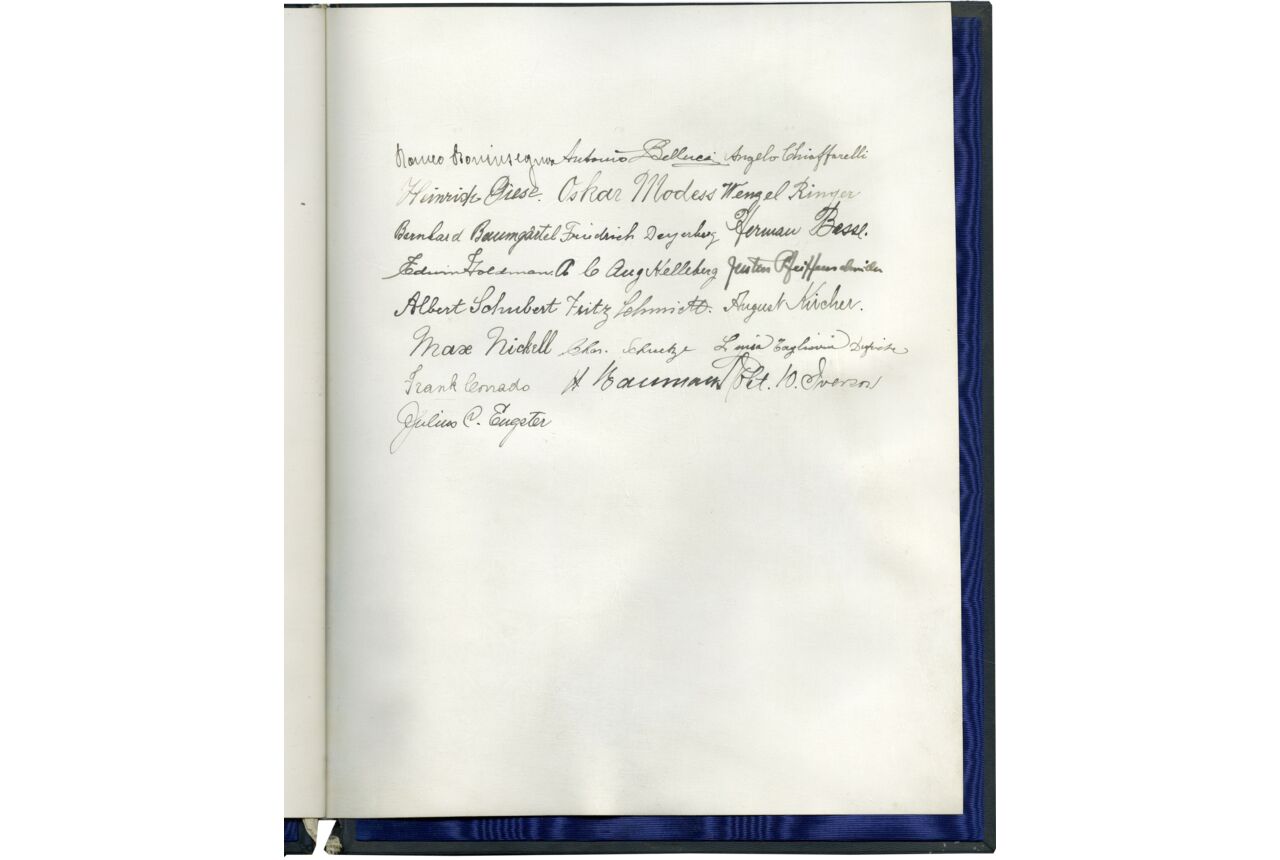 Romeo Boninsegna Antonio Bellucci Angelo Chiaffarelli
Heinrich Giese. Oskar Modess Wenzel Ringer
Bernhard Baumgärtel Friedrich Herman Besse.
Edwin Goldman. A C Aug Helleberg
Albert Schubert Fritz Schmidt. August Kircher.
Max Nickell Chas. Schuetze Louisa Tagliavia
Frank Corrado H Baumann Pet. W. Iverson
Julius C. Engster